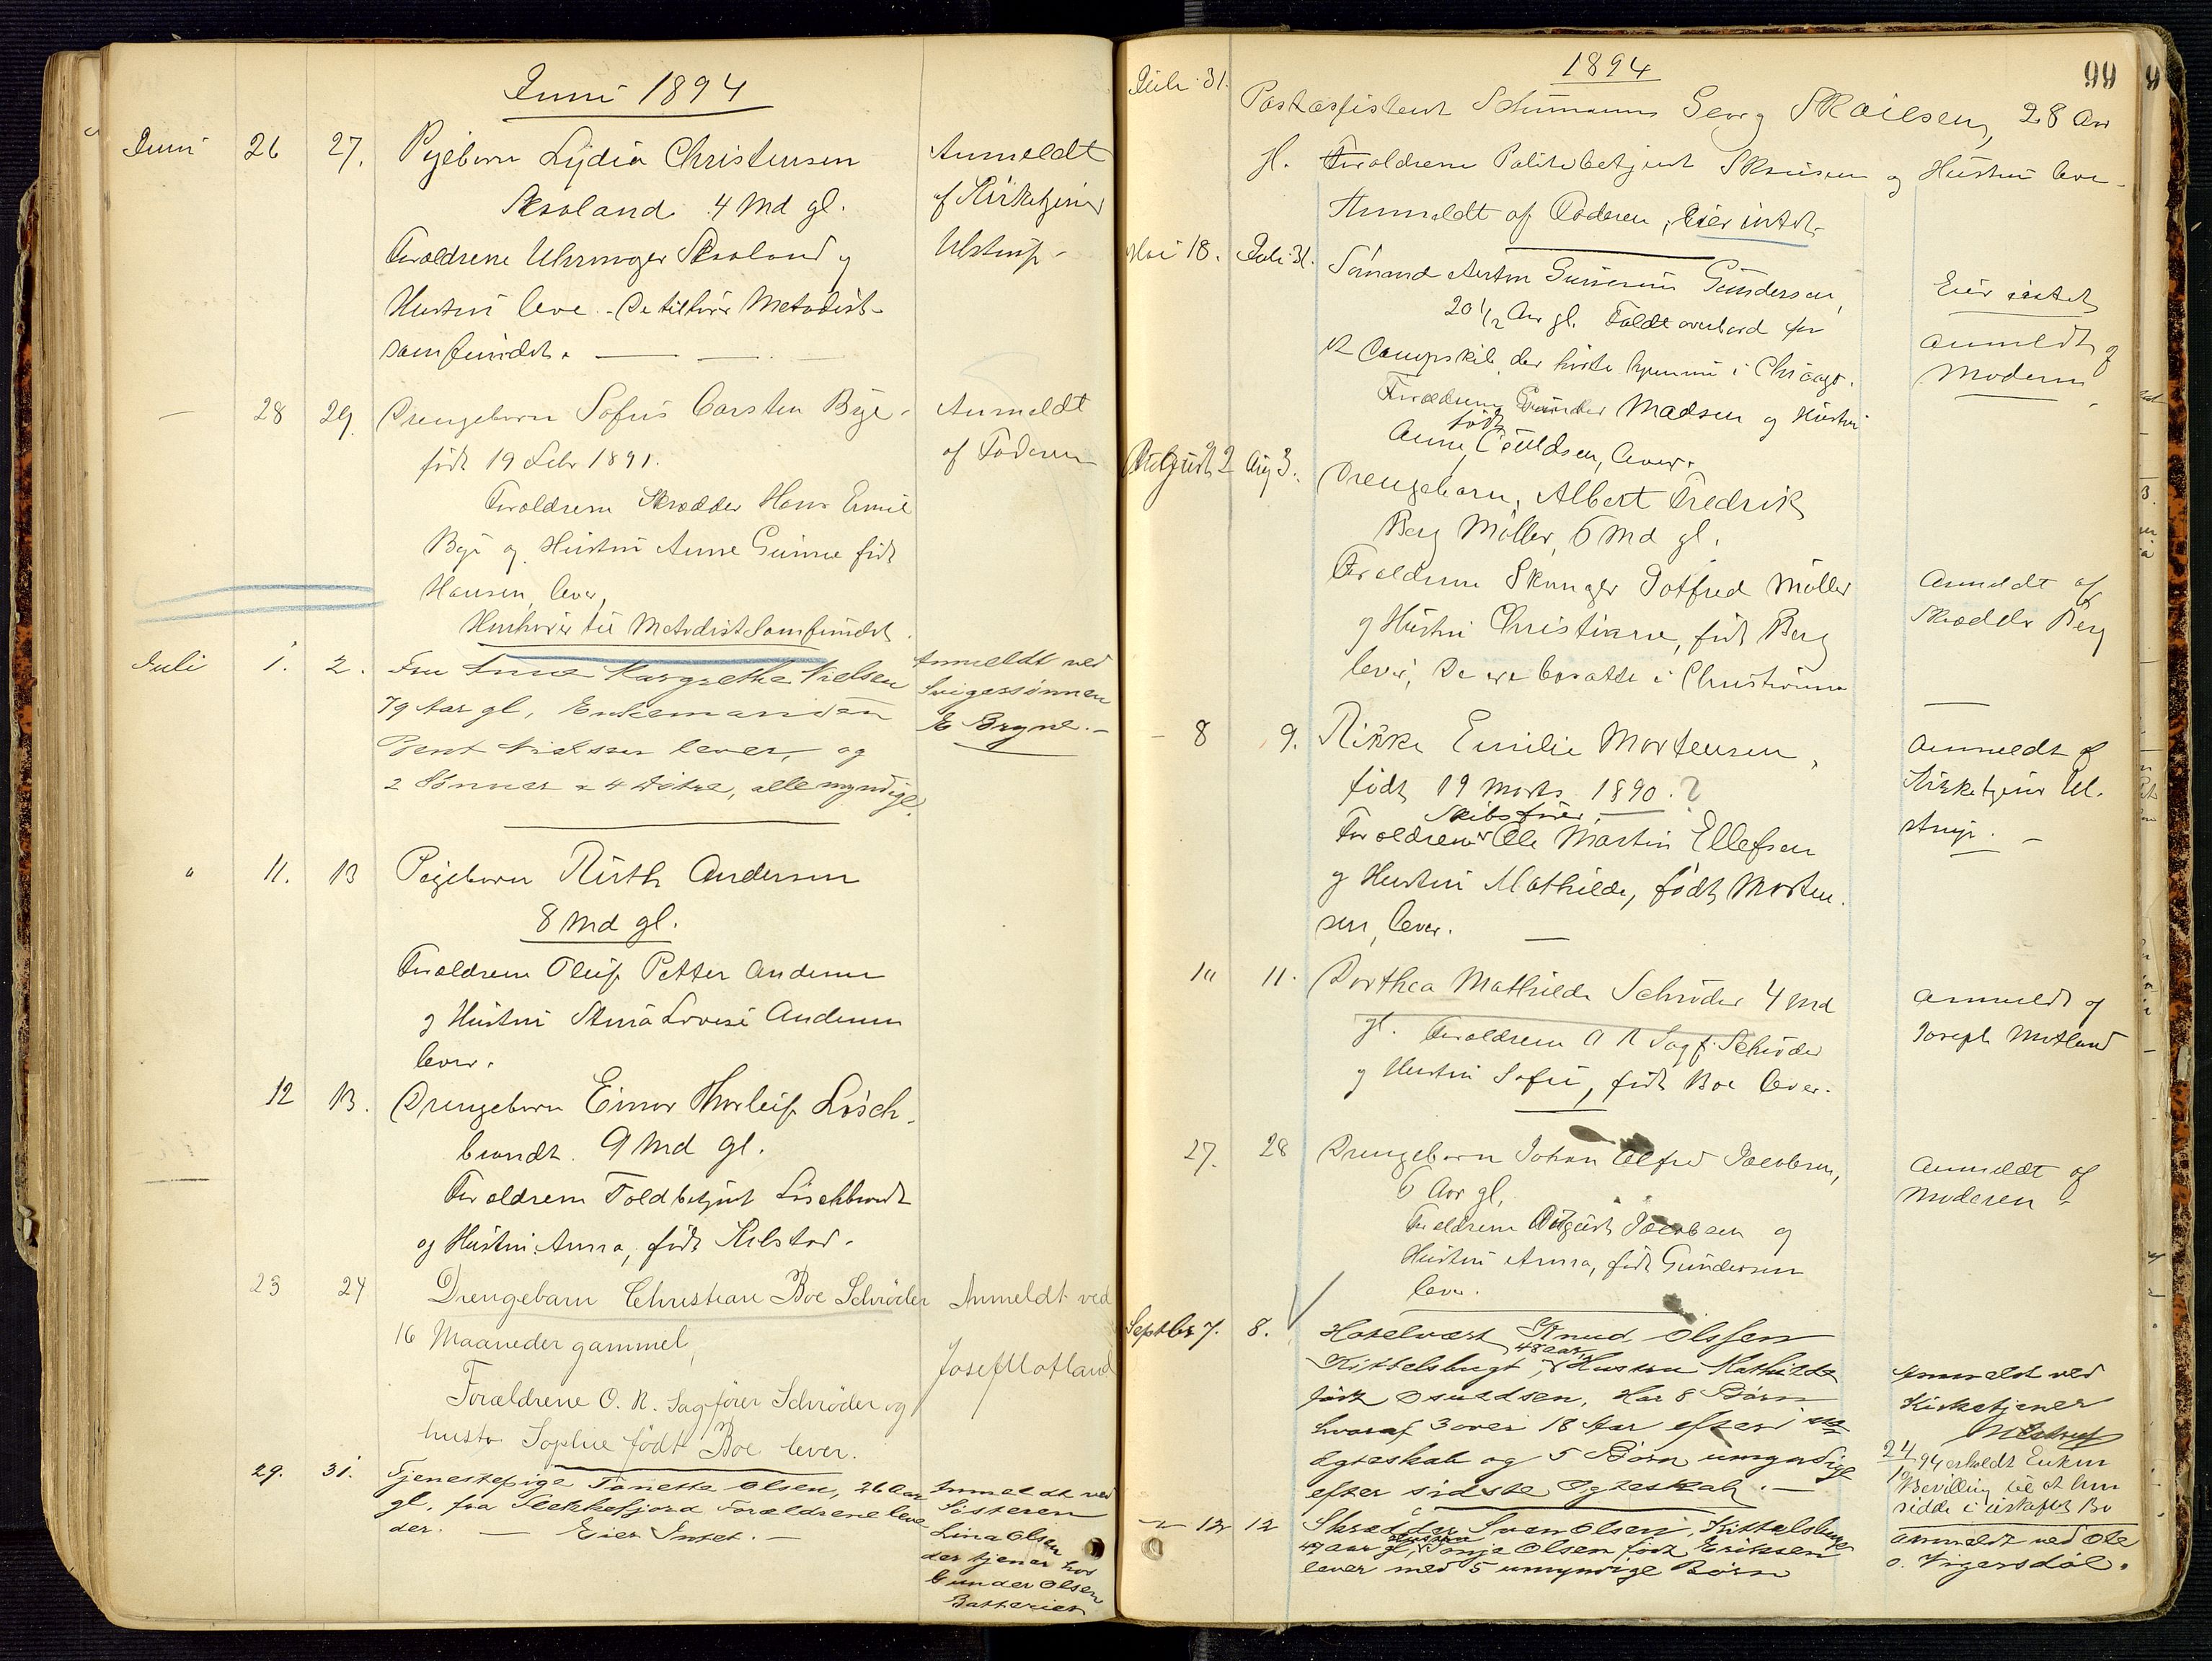 Juni 1894
Juni 26 27. Pigebarn Lydia Christensen
Skoland 4 Md gl.
Forældrene Uhrmager Skoland og
Hustru leve. - De tilhører Metodist-
samfundet.
Anmeldt
af Kirketjener
Ulstrup -
— 28 29. Drengebarn Sofus Carsten Bye.
født 19 Febr 1891.
Forældrene Skrædder Hans Emil
Bye og Hustru Anne Gurine født
Hansen, lever,
Henhører til Metodist Samfundet.
Anmeldt
af Faderen
Juli 1. 2. Fru Anne Margrethe Nielsen
79 Aar gl, Enkemanden
Bent Nielsen lever, og
2 Sønner & 4 Døtre, alle myndige.
Anmeldt ved
Svigersønnen
E Bryne. -
" 11. 13 Pigebarn Ruth Andersen
8 Md gl.
Forældrene Oluf Petter Andersen
og Hustru Stina Lovise Andersen
lever.
12 13. Drengebarn Einar Thorleif Lösch-
brandt. 9 Md gl.
Forældrene Toldbetjent Löschbrandt
og Hustru Anna, født Kilstad.
23 24 Drengebarn Christian Boe Schrøder
16 Maaneder gammel,
Forældrene O. R. Sagfører Schrøder og
hustr Sophie født Boe lever.
Anmeldt ved
Josef Motland
29. 31. Tjenestepige Tonette Olsen, 26 Aar
gl. fra Flekkefjord Forældrene leve
der. — Eier Intet. -
Anmeldt ved
Søsteren
Lina Olsen
der tjener hos
Gunder Olsen
Batteriet
1894
99
Juli 31. Postassistent Schumann Georg Skoilsen, 28 Aar
gl. Forældrene Politibetjent Skoilsen og Hustru leve.
Anmeldt af Faderen, Eier intet.
Mai 18. Juli 31. Sømand Anton Gunerius Gundersen,
20 1/2 Aar gl. Faldt overbord fra
et Dampskib, der hørte hjemme i Chicago.
Forældrene Gunder Madsen og Hustru
født
Anne, Couldsen, lever.
Eier intet
anmeldt af
Moderen
August 2 Aug 3. Drengebarn, Albert Fredrik
Berg Møller, 6 Md gl.
Forældrene Gotfred Møller
og Hustru Christiane, født Berg
lever, De ere bosatte i Christiania
Anmeldt af
Skrædder Berg
- 8 9. Rikke Emilie Mortensen,
født 19 Marts 1890. ?
Skibsfører
Forældrene Ole Martin Ellefsen
og Hustru Mathilde, født Morten-
sen, lever.
Anmeldt af
Kirketjener Ul-
strup. -
10 11. Dorthea Mathilde Schrøder 4 Md
gl. Forældrene O R Sagf. Schrøder
og Hustru Sofie, født Boe lever.
Anmeldt af
Joseph Motland
27. 28 Drengebarn Johan Alfred Jacobsen,
6 Aar gl,
Forældrene August Jacobsen og
Hustru Anna, født Gundersen
lever.
Anmeldt af
Moderen -
Septbr 7. 8. Hotelvært Knud Olsen
48 aar,
Kittelsbugt, & Hustru Mathilde
født Osuldsen. Har 8 Børn
hvoraf 3 over 18 Aar efter
Egteskab og 5 Børn umyndige
efter sidste Egteskab. -
Anmeldt ved
Kirketjener
Ulstrup
24/9 94 erholdt Enken
Bevilling til at hen-
sidde i uskiftet Bo
12 12 Skrædder Sven Olsen, Kittelsbugt
Hustru
47 aar gl, Tonja Olsen født Eriksen
lever med 5 umyndige Børn
anmeldt ved Ole
O. Vigersdal.